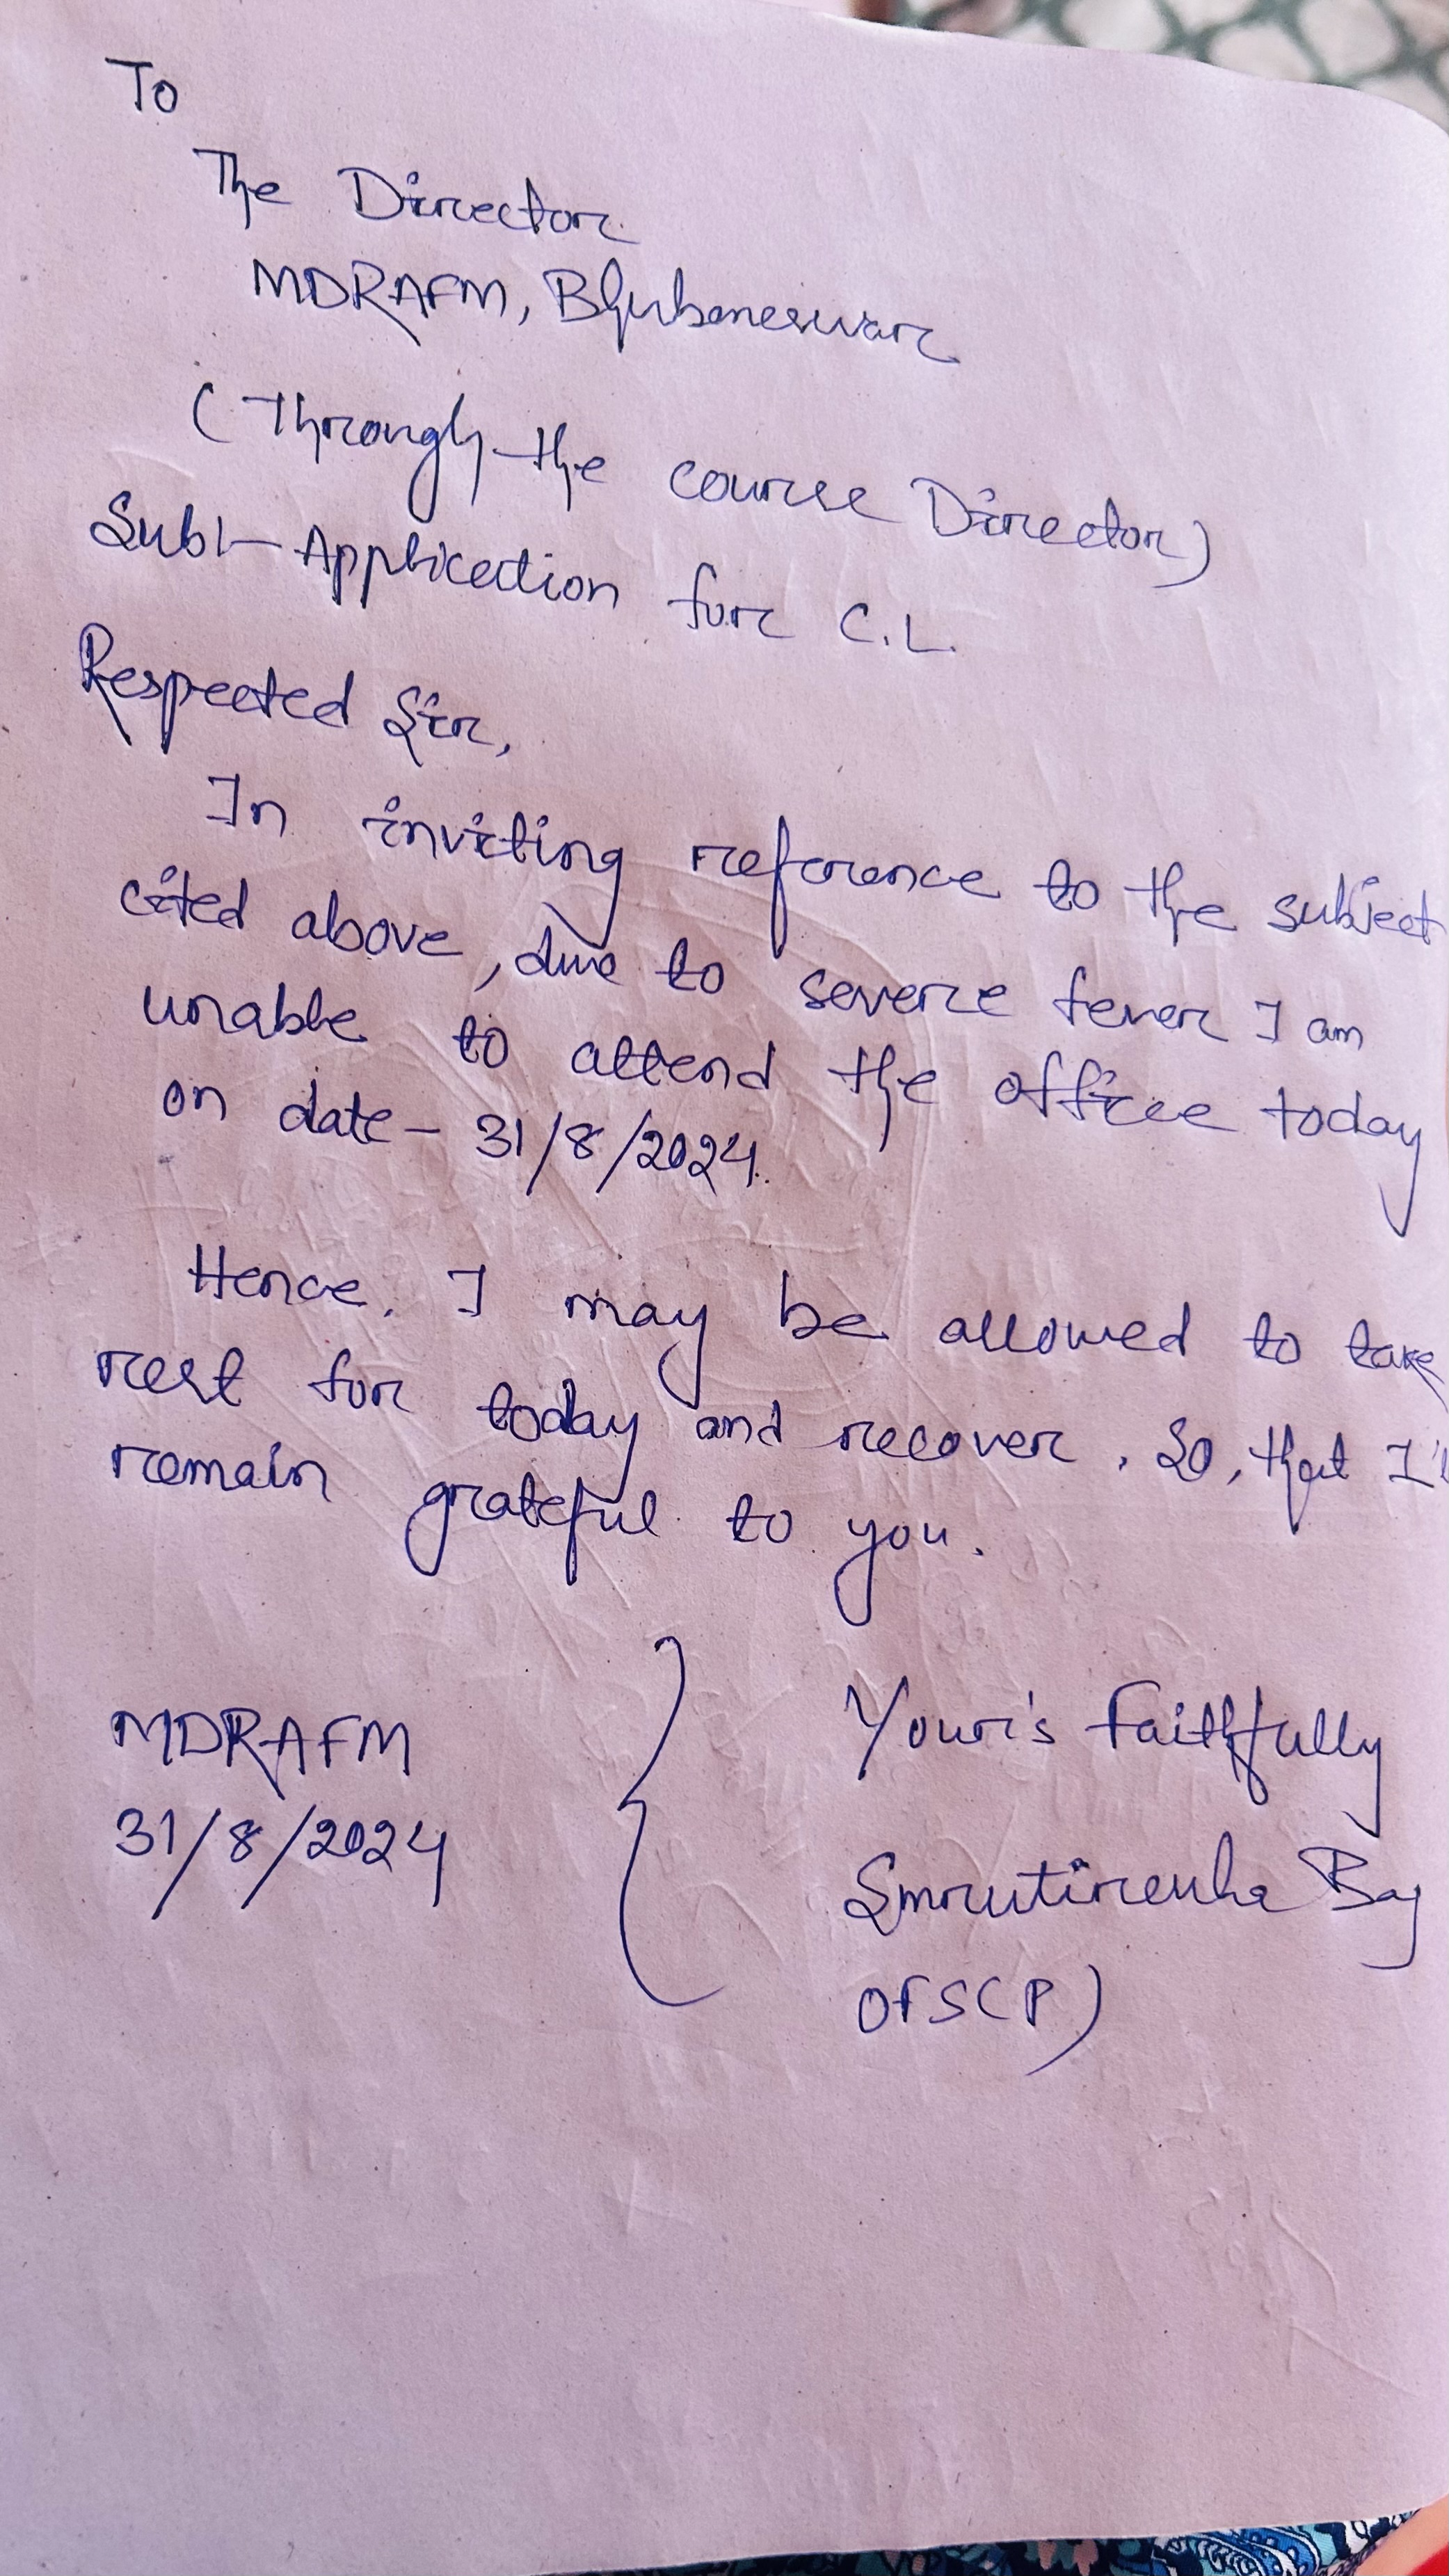 To
The Director
MDRAFM, Bhubaneswar
(Through the course Director)
Sub:- Application for C.L.
Respected Sir,
In inviting reference to the subject
cited above, due to severe fever I am
unable to attend the office today
on date - 31/8/2024.
Hence, I may be allowed to take
rest for today and recover. So, that I'll
remain grateful to you.
MDRAFM
31/8/2024
Your's faithfully
Smrutirekha Bag
OFS(P)